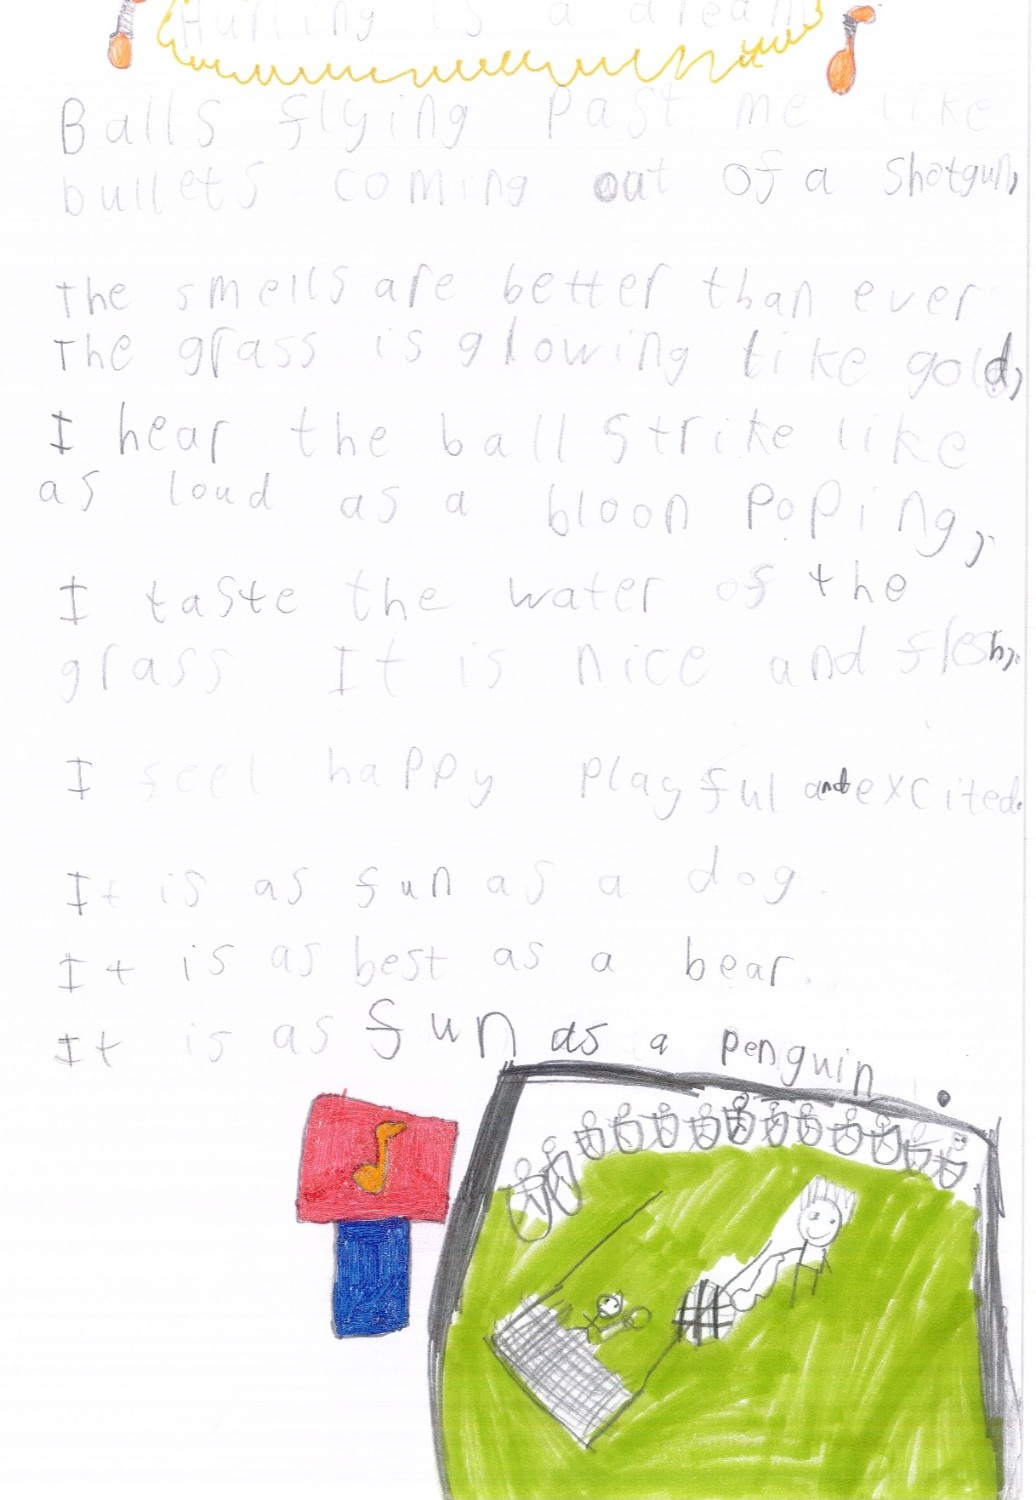 Hurling is a dream
Balls flying past me like
bullets coming out of a shotgun,
the smells are better than ever
The grass is glowing like gold,
I hear the ball strike like
as loud as a bloon poping,
I taste the water of the
grass It is nice and flesh,
I feel happy playful and excited.
It is as fun as a dog.
It is as best as a bear.
It is as fun as a penguin.